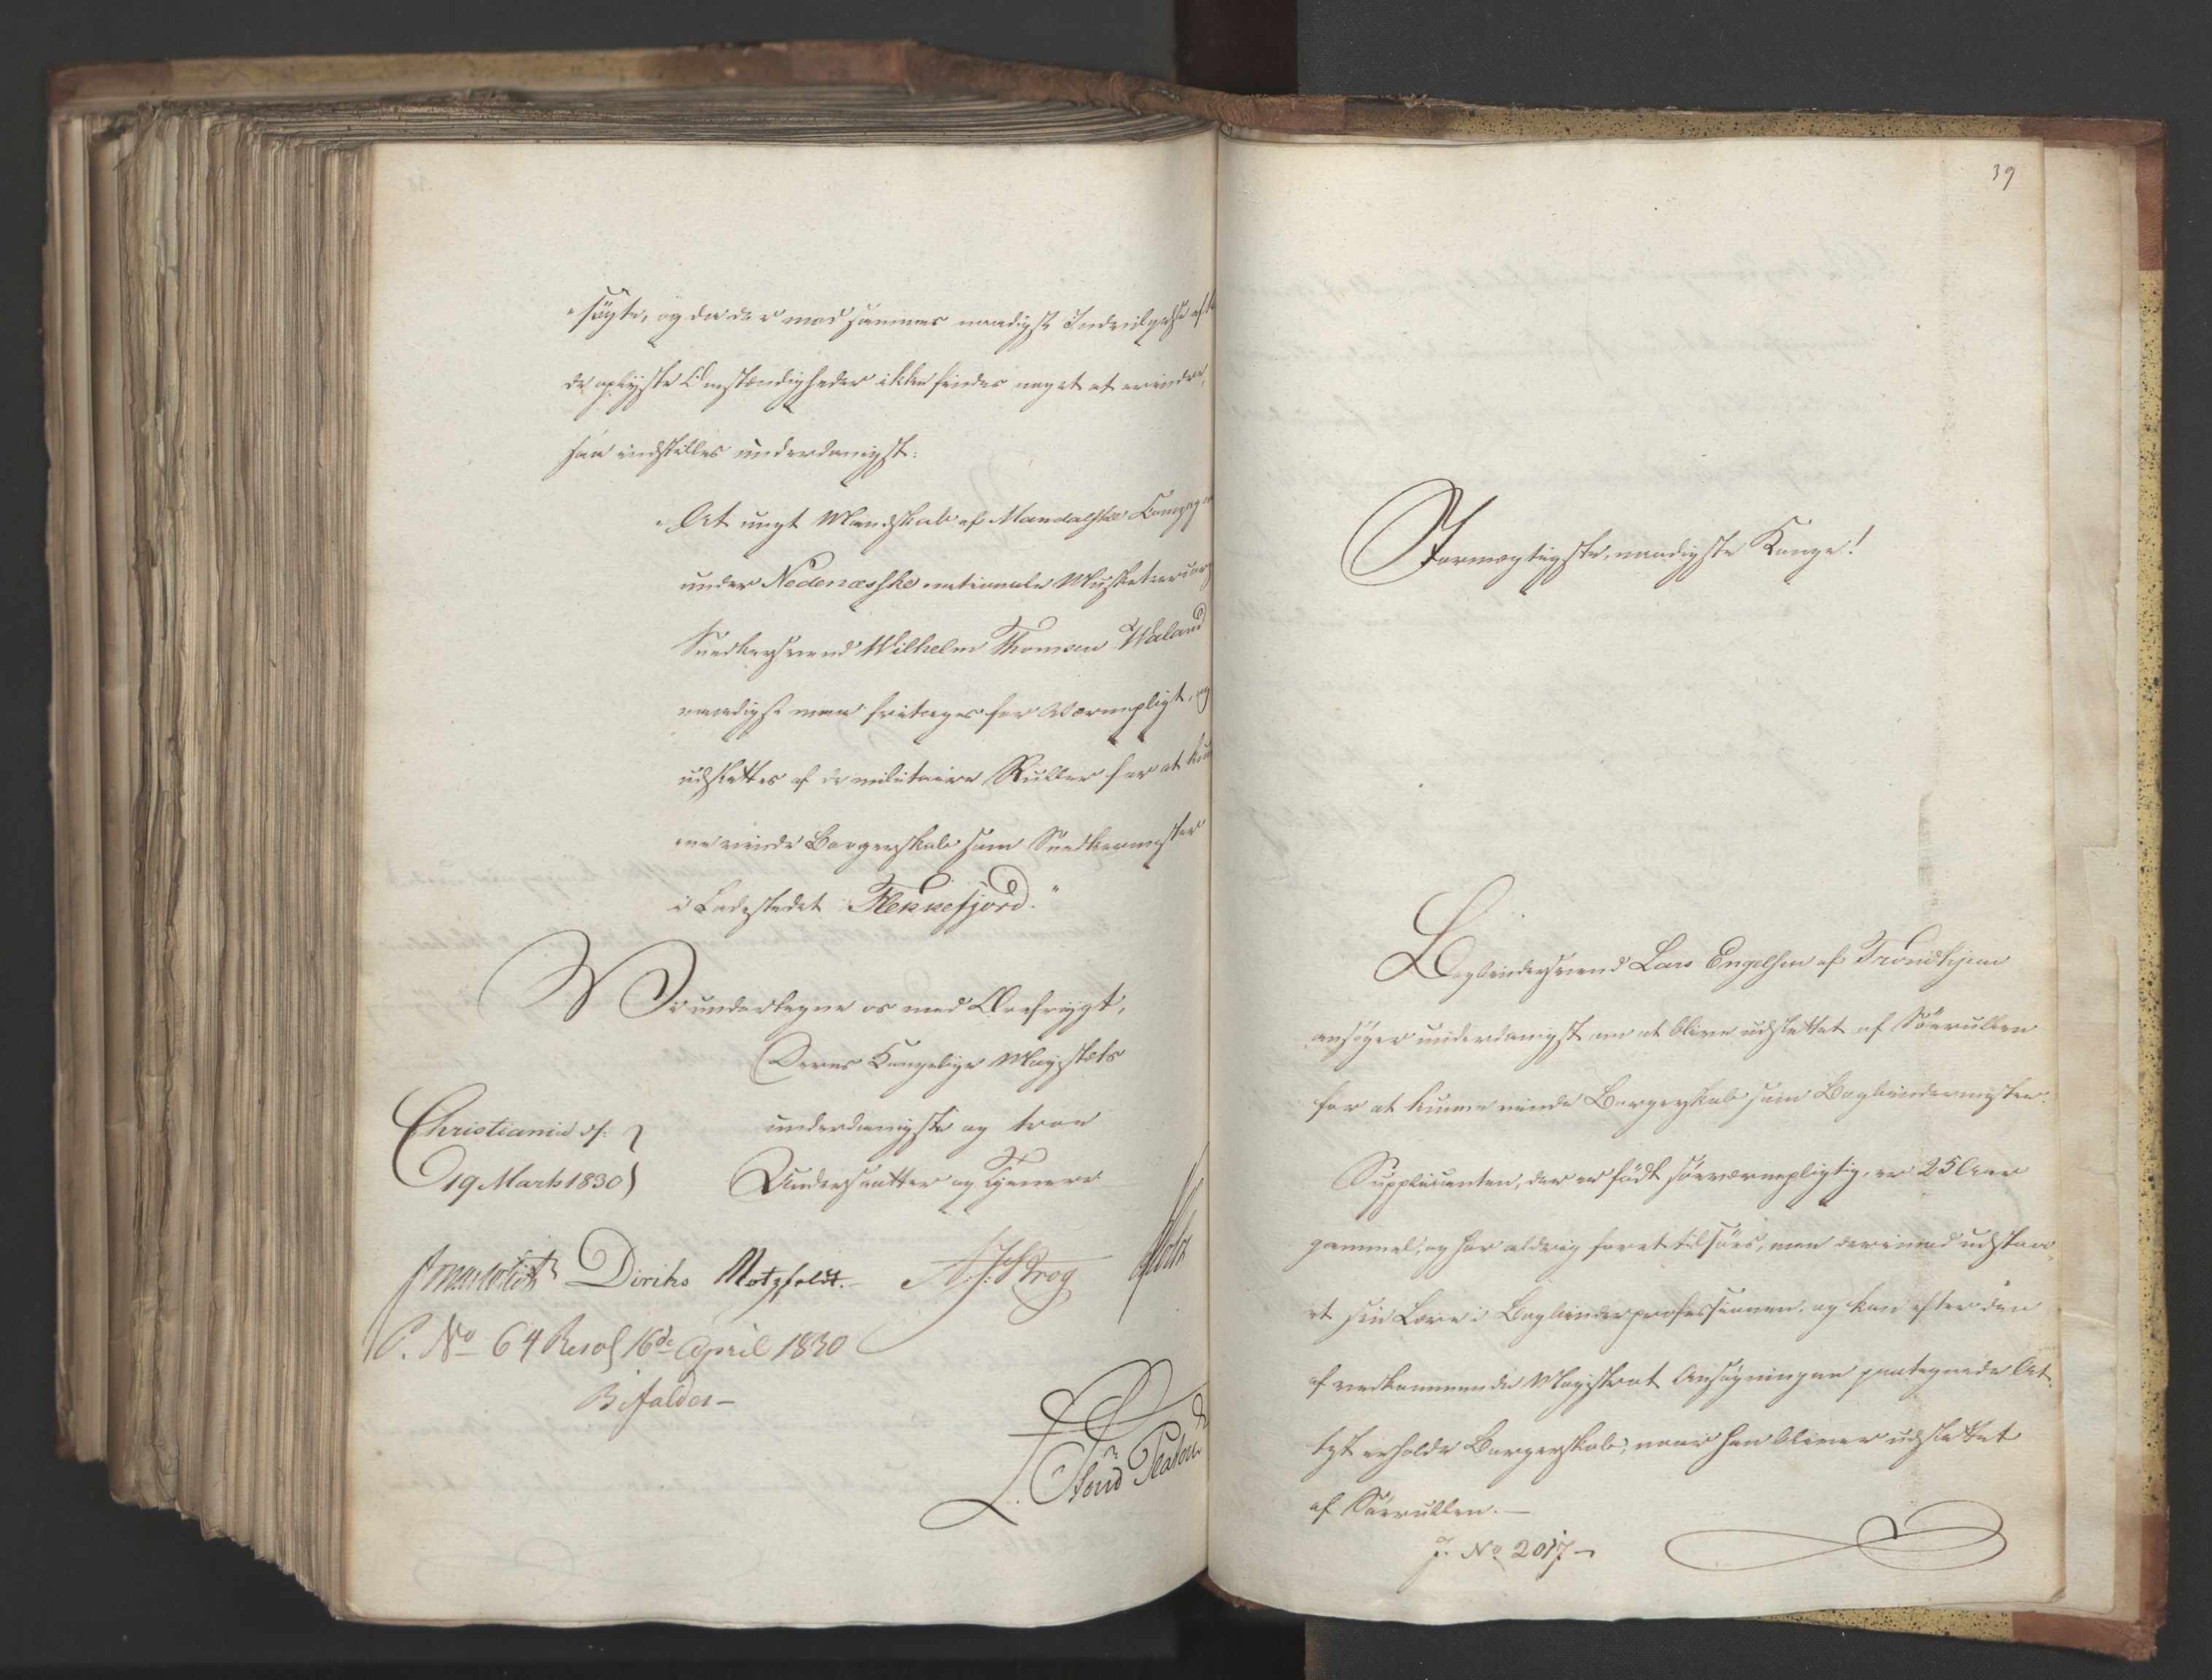 søgte, og da der mod sammes naadigst Indvilgelse efter
de oplyste Omstændigheder ikke findes noget at erindre,
saa indstilles underdanigst:
"At ungt Mandskab af Mandalske Compagnie
under Nedenæsske nationale Musketeercorps
Snedkersvend Wilhelm Thomsen Waland
naadigst maa fritages for Værnepligt, og
udslettes af de militaire Ruller for at kun-
ne vinde Borgerskab som Snedkermester
i Ladestedet Flekkefjord."
Vi undertegne os med Ærefrygt,
Deres Kongelige Majestæts
underdanigste og troe
Undersaatter og Tjenere
Christiania d:
19 Marts 1830
Diriks Motzfeldt. Krog Holst
P. No 64 Resol 16de April 1830
Bifaldes
39
Stormægtigste, naadigste Konge!
Bogbindersvend Lars Engelsen af Trondhjem
ansøger underdanigst om at blive udslettet af Søerullen
for at kunne vinde Borgerskab som Bogbindermester.
Supplicanten, der er født søeværnepligtig, er 25 Aar
gammel, og har aldrig faret tilsøes, men derimod udstaa-
et sin Lære i Bogbinderprofessionen, og kan efter den
af vedkommende Magistrat Ansøgningen paategnede At-
test erholde Borgerskab, naar han bliver udslettet
af Søerullen. —
J. No 2017 —